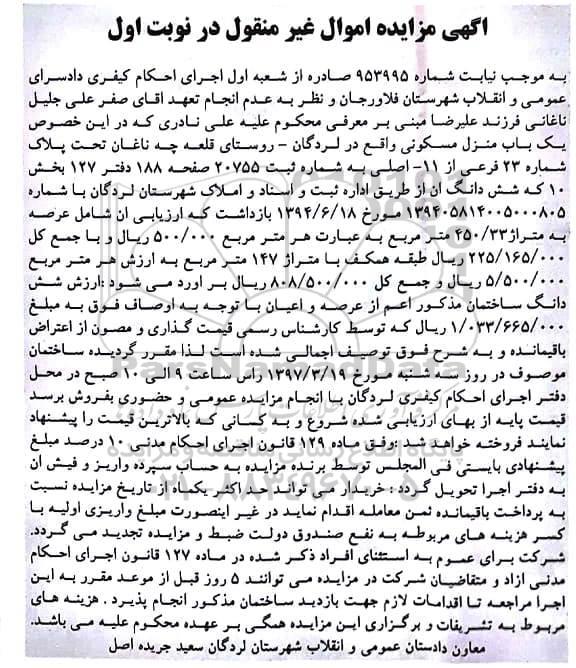 اگهی مزایده اموال غیر منقول در نوبت اول
به موجب نیابت شماره ۹۵۳۹۹۵ صادره از شعبه اول اجرای احکام کیفری دادسرای
عمومی و انقلاب شهرستان فلاورجان و نظر به عدم انجام تعهد اقای صفر علی جلیل
ناغانی فرزند علیرضا مبنی بر معرفی محکوم علیه علی نادری که در این خصوص
یک باب منزل مسکونی واقع در لردگان - روستای قلعه چه ناغان تحت پلاک
شماره ۲۳ فرعی از ۱۱- اصلی به شماره ثبت ۲۰۷۵۵ صفحه ۱۸۸ دفتر ۱۲۷ بخش
۱۰ که شش دانگ آن از طریق اداره ثبت و اسناد و املاک شهرستان لردگان با شماره
۱۳۹۴۰۵۸۱۴۰۰۵۰۰۰۸۰۵ مورخ ۱۳۹۴/۶/۱۸ بازداشت که ارزیابی ان شامل عرصه
به متراژ۴۵۰/۳۳ متر مربع به عبارت هر متر مربع ۵۰۰/۰۰۰ ریال و با جمع کل
۲۲۵/۱۶۵/۰۰۰ ریال طبقه همکف با متراژ ۱۴۷ متر مربع به ارزش هر متر مربع
۵/۵۰۰/۰۰۰ ریال و جمع کل ۸۰۸/۵۰۰/۰۰۰ ریال بر اورد می شود :ارزش شش
دانگ ساختمان مذکور اعم از عرصه و اعیان با توجه به اوصاف فوق به مبلغ
۱/۰۳۳/۶۶۵/۰۰۰ ریال که توسط کارشناس رسمی قیمت گذاری و مصون از اعتراض
باقیمانده و به شرح فوق توصیف اجمالی شده است لذا مقرر گردیده ساختمان
موصوف در روز سه شنبه مورخ ۱۳۹۷/۳/۱۹ راس ساعت ۹ الی ۱۰ صبح در محل
دفتر اجرای احکام کیفری لردگان با انجام مزایده عمومی و حضوری بفروش برسد
قیمت پایه از بهای ارزیابی شده شروع و به کسانی که بالاترین قیمت را پیشنهاد
نمایند فروخته خواهد شد :وفق ماده ۱۲۹ قانون اجرای احکام مدنی ۱۰ درصد مبلغ
پیشنهادی بایستی فی المجلس توسط برنده مزایده به حساب سپرده واریز و فیش ان
به دفتر اجرا تحویل گردد : خریدار می تواند حداکثر یکماه از تاریخ مزایده نسبت
به پرداخت باقیمانده ثمن معامله اقدام نماید در غیر اینصورت مبلغ واریزی اولیه با
کسر هزینه های مربوطه به نفع صندوق دولت ضبط و مزایده تجدید می گردد.
شرکت برای عموم به استثنای افراد ذکر شده در ماده ۱۲۷ قانون اجرای احکام
مدنی ازاد و متقاضیان شرکت در مزایده می توانند ۵ روز قبل از موعد مقرر به این
اجرا مراجعه تا اقدامات لازم جهت بازدید ساختمان مذکور انجام پذیرد . هزینه های
مربوط به تشریفات و برگزاری این مزایده همگی بر عهده محکوم علیه می باشد.
معاون دادستان عمومی و انقلاب شهرستان لردگان سعید جریده اصل
ParsNamadData
۰۲۱-۸۸۳۴۹۶۷۰-۵